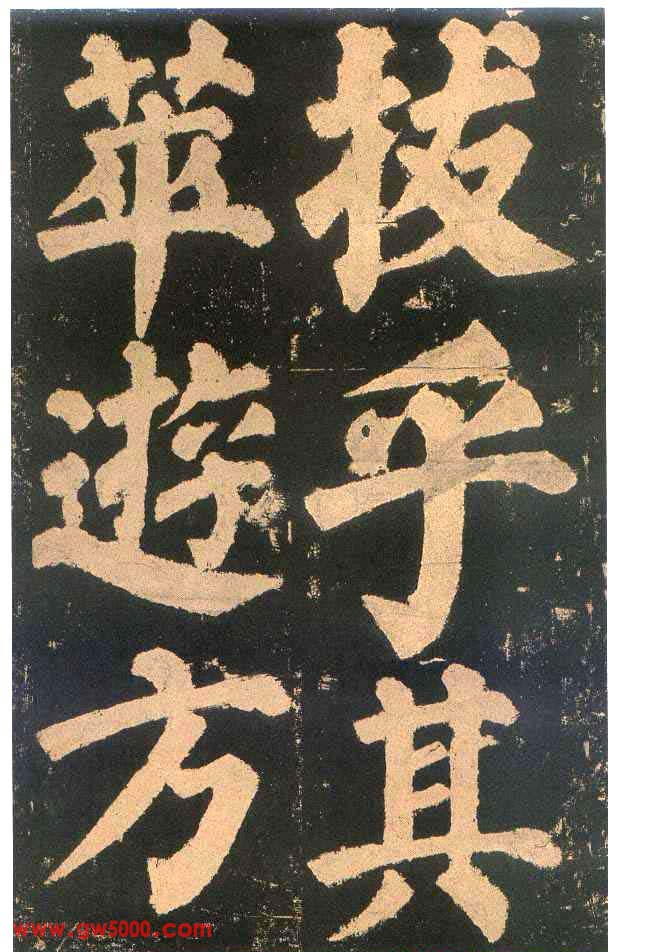 拔乎其
萃遊方
www.gw5000.com